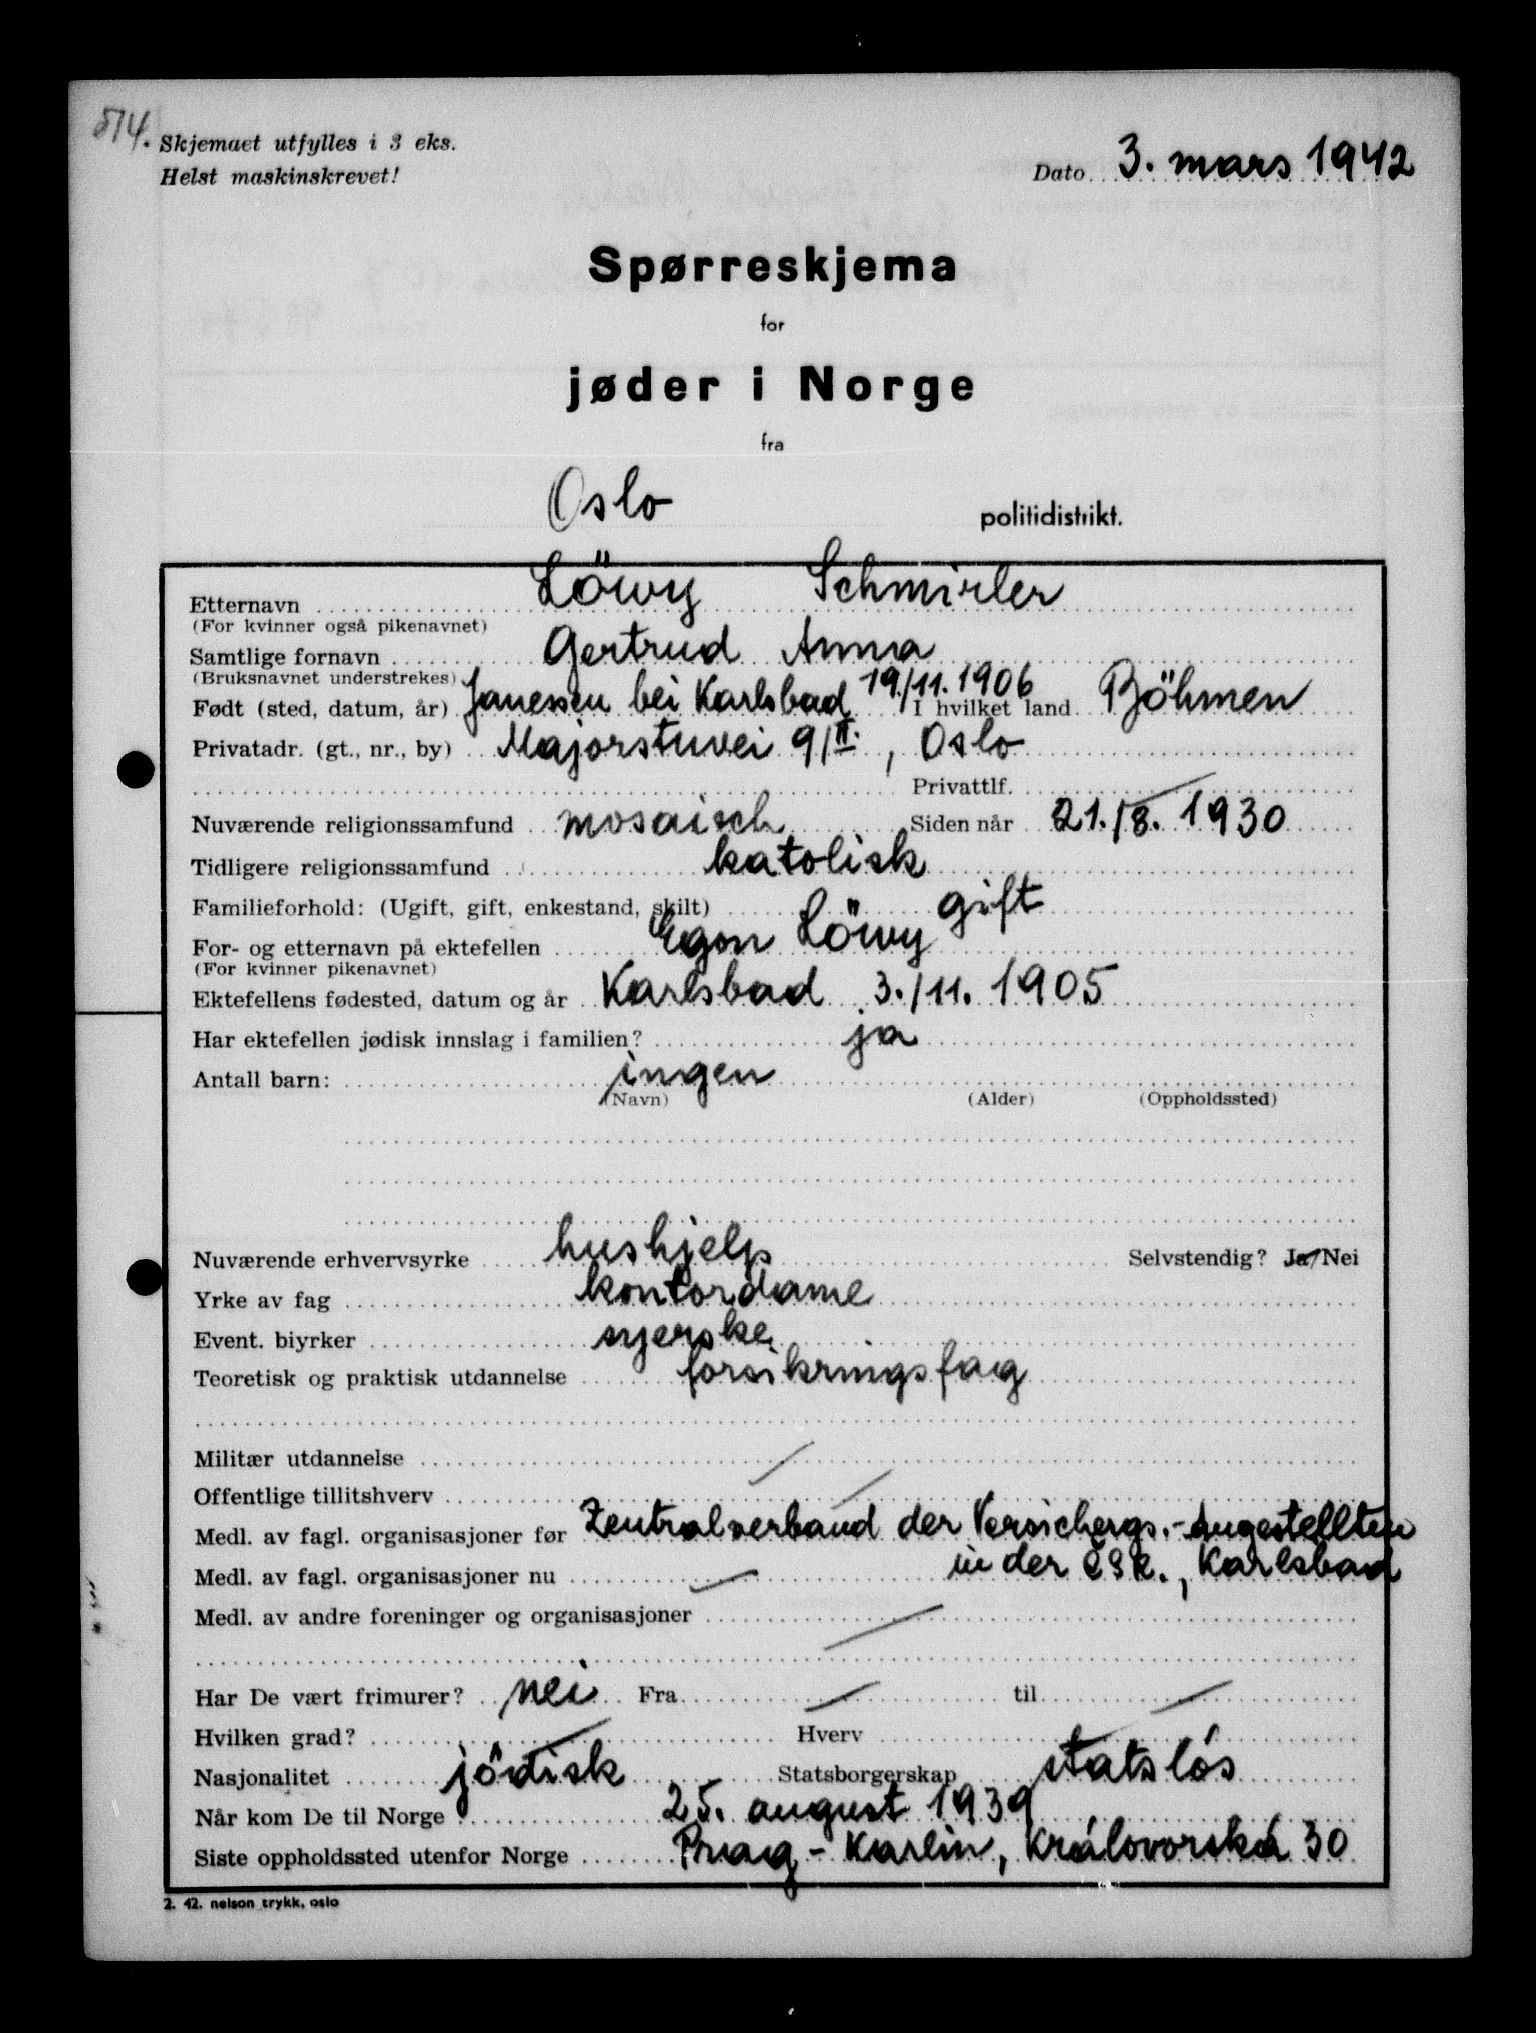 514.
Skjemaet utfylles i 3 eks.
Helst maskinskrevet!
Dato 3. mars 1942
Spørreskjema
for
jøder i Norge
fra
Oslo politidistrikt.
Etternavn Löwy Schmirler
(For kvinner også pikenavnet)
Samtlige fornavn Gertrud Anna
(Bruksnavnet understrekes)
Født (sted, datum, år) Janessen bei Karlsbad 19./11.1906 I hvilket land Böhmen
Privatadr. (gt., nr., by) Majorstuvei 9/II., Oslo
Privattlf. /
Nuværende religionssamfund mosaisch Siden når 21./8. 1930
Tidligere religionssamfund katolisk
Familieforhold: (Ugift, gift, enkestand, skilt) gift
For- og etternavn på ektefellen Egon Löwy
(For kvinner pikenavnet)
Ektefellens fødested, datum og år Karlsbad 3./11. 1905
Har ektefellen jødisk innslag i familien? ja
Antall barn: ingen
(Navn) (Alder) (Oppholdssted)
Nuværende erhvervsyrke hushjelp Selvstendig? Ja/Nei
Yrke av fag kontordame
Event. biyrker syerske
Teoretisk og praktisk utdannelse forsikringsfag
Militær utdannelse /
Offentlige tillitshverv /
Medl. av fagl. organisasjoner før Zentralverband der Versichergs.-Angestellten
in der ČSR., Karlsbad
Medl. av fagl. organisasjoner nu /
Medl. av andre foreninger og organisasjoner /
Har De vært frimurer? nei Fra / til /
Hvilken grad? / Hverv /
Nasjonalitet jödisk Statsborgerskap statslös
Når kom De til Norge 25. august 1939
Siste oppholdssted utenfor Norge Prag - Karlin, Královorská 30
2. 42. nelson trykk, oslo